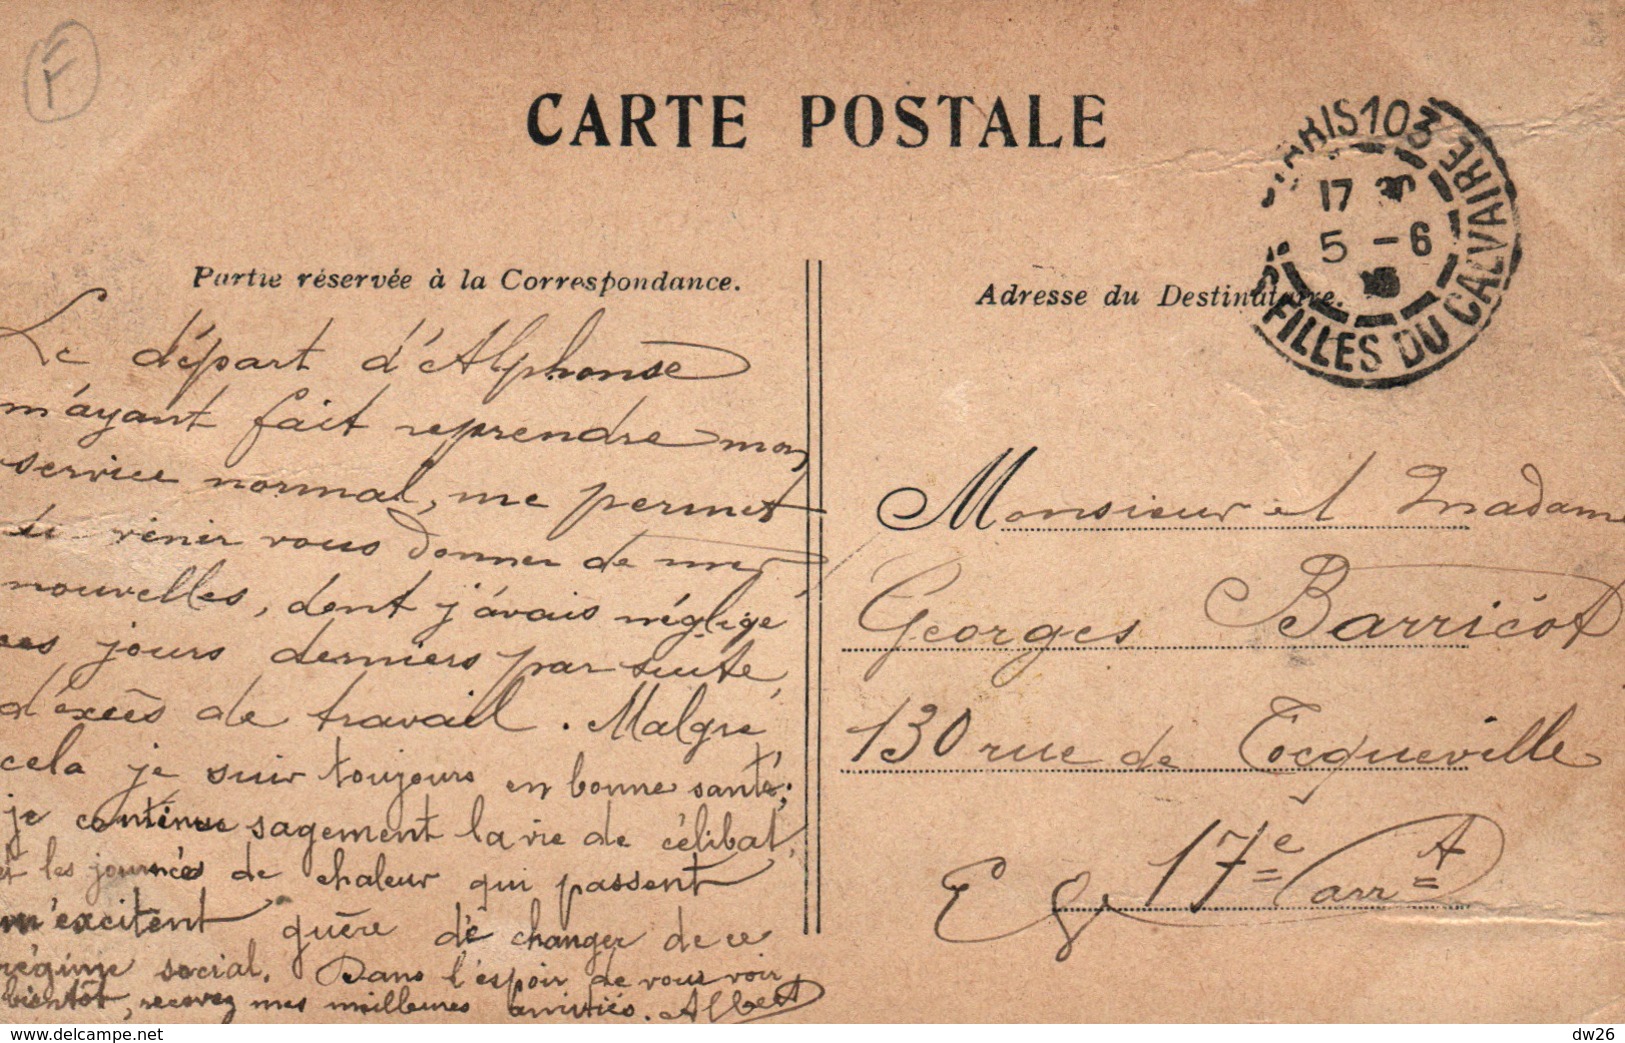 F
CARTE POSTALE
PARIS 103
17
5 - 6
FILLES DU CALVAIRE
Partie réservée à la Correspondance.
Adresse du Destinataire.
Le départ d'Alphonse
m'ayant fait reprendre mon
service normal, me permet
de vénir vous donner de mes
nouvelles, dont j'avais négligé
ces jours derniers par suite
d'éxcès de travail. Malgré
cela je suis toujours en bonne santé;
je continue sagement la vie de célibat,
et les journées de chaleur qui passent
m'excitent guère de changer de ce
régime social. Dans l'espoir de vous voir
bientôt, recevez mes meilleures amitiés. Albert
Monsieur et Madame
Georges Barricot
130 rue de Tocqueville
17e arrt
dw26